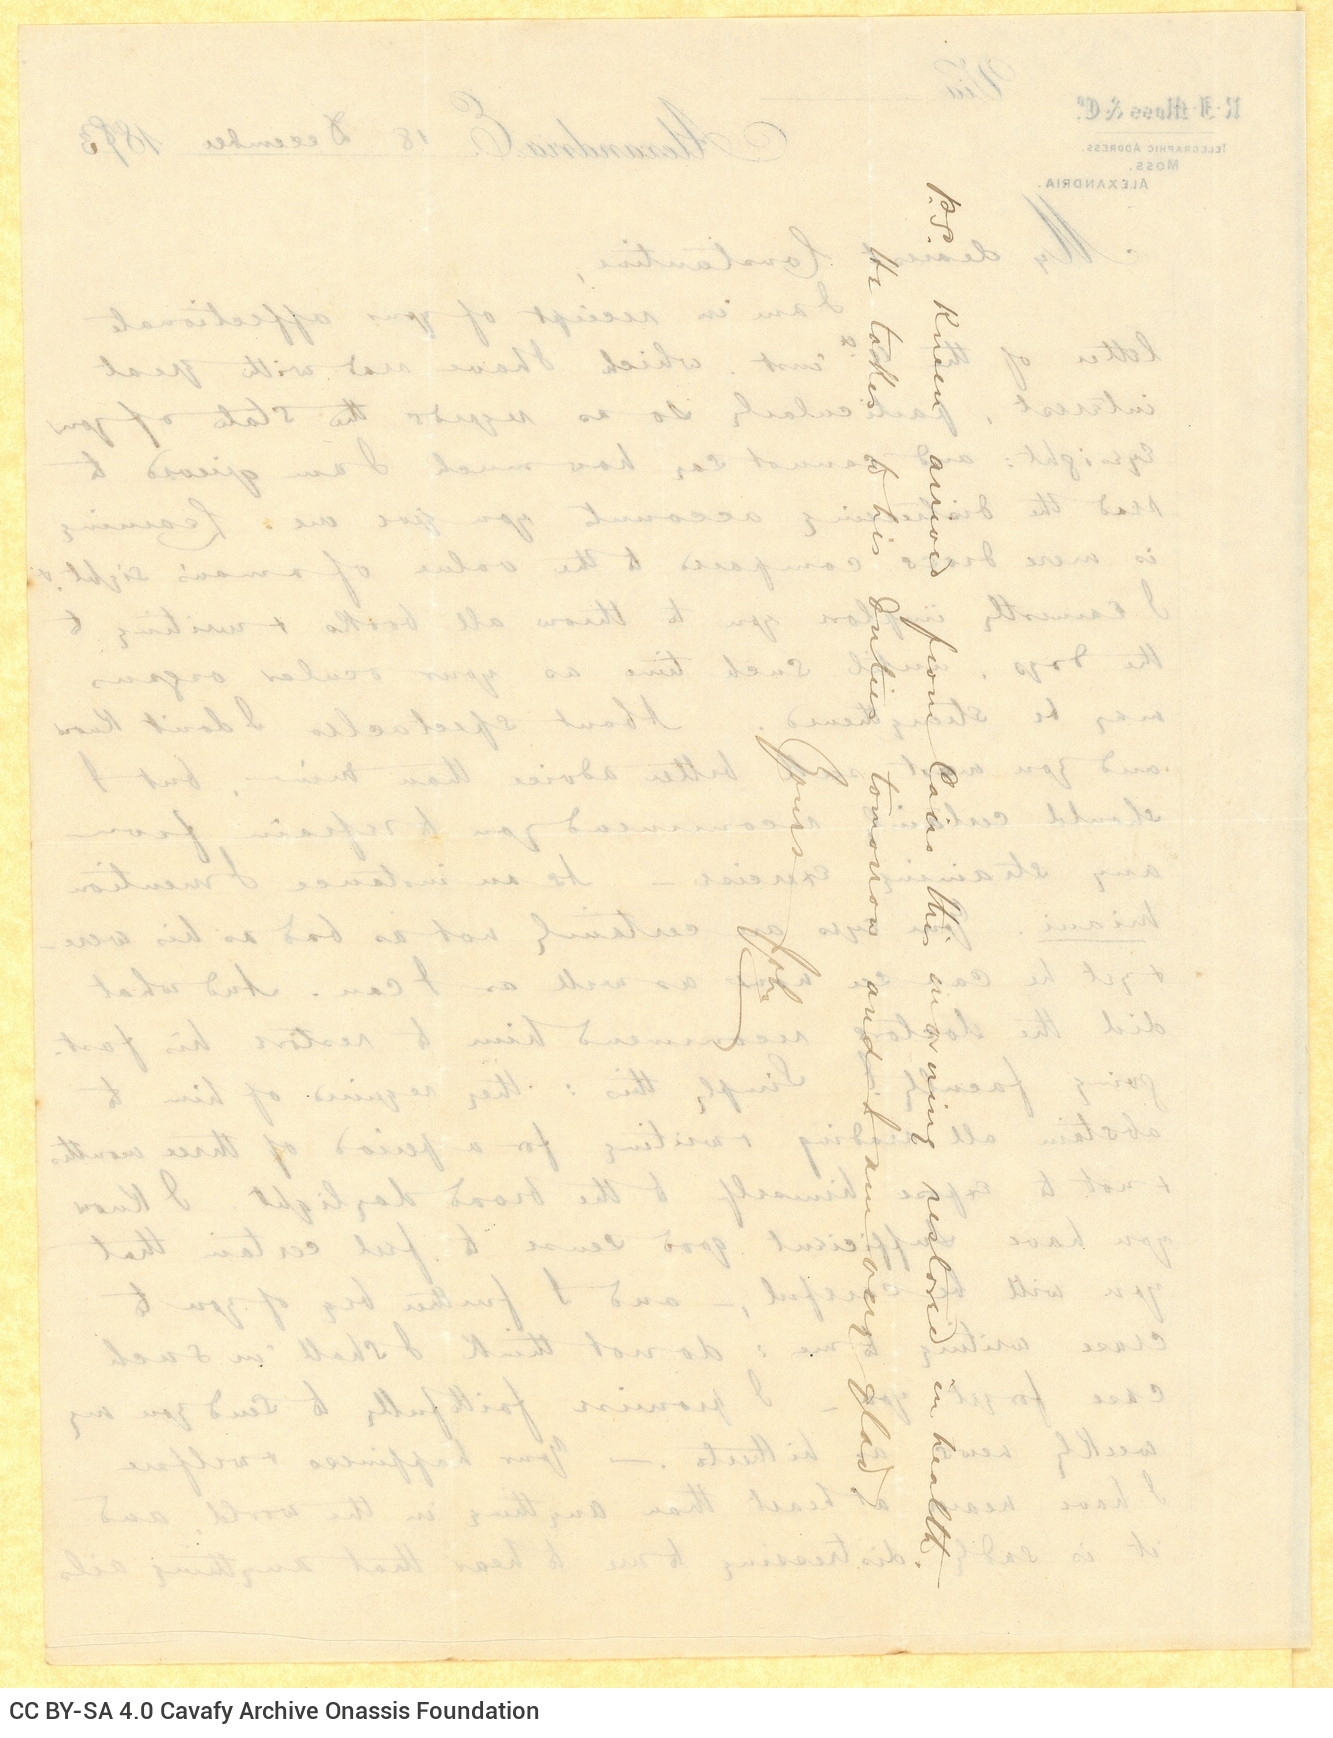 P.S. Kneen arrived from Cairo this morning restored in health.
He takes to his duties tomorrow and I am very glad,
Yours
John
R. J. Moss & Co.
TELEGRAPHIC ADDRESS.
MOSS.
ALEXANDRIA.
Via
Alexandria E. 18 December 1883
My dearest Constantine,
I am in receipt of your affectionate
letter of the inst. which I have read with great
interest, particularly so as regards the state of your
Eyesight: and cannot say how much I am grieved to
read the distressing account you give me. Learning
is mere dross compared to the value of a man's sight.
I earnestly implore you to throw all books & writing to
the dogs, until such time as your ocular organs
may be strengthened. About spectacles I don't know
and you must seek better advice than mine, but I
should certainly recommend you to refrain from
any straining exercise – As an instance I mention
Miani. Your eyes are certainly not as bad as his were –
& yet he can see now as well as I can. And what
did the doctors recommend him to restore his fast
going faculty Simply this: they required of him to
abstain all reading & writing for a period of three months
& not to expose himself to the broad daylight I know
you have sufficient good sense to feel certain that
you will be careful, – and I further beg of you to
cease writing me: do not think I shall in such
case forget you – I promise faithfully to send you my
weekly news as hitherto. – Your happiness & welfare
I have nearer at heart than anything in the world, and
it is sadly distressing to me to hear that anything ails
CC BY-SA 4.0 Cavafy Archive Onassis Foundation